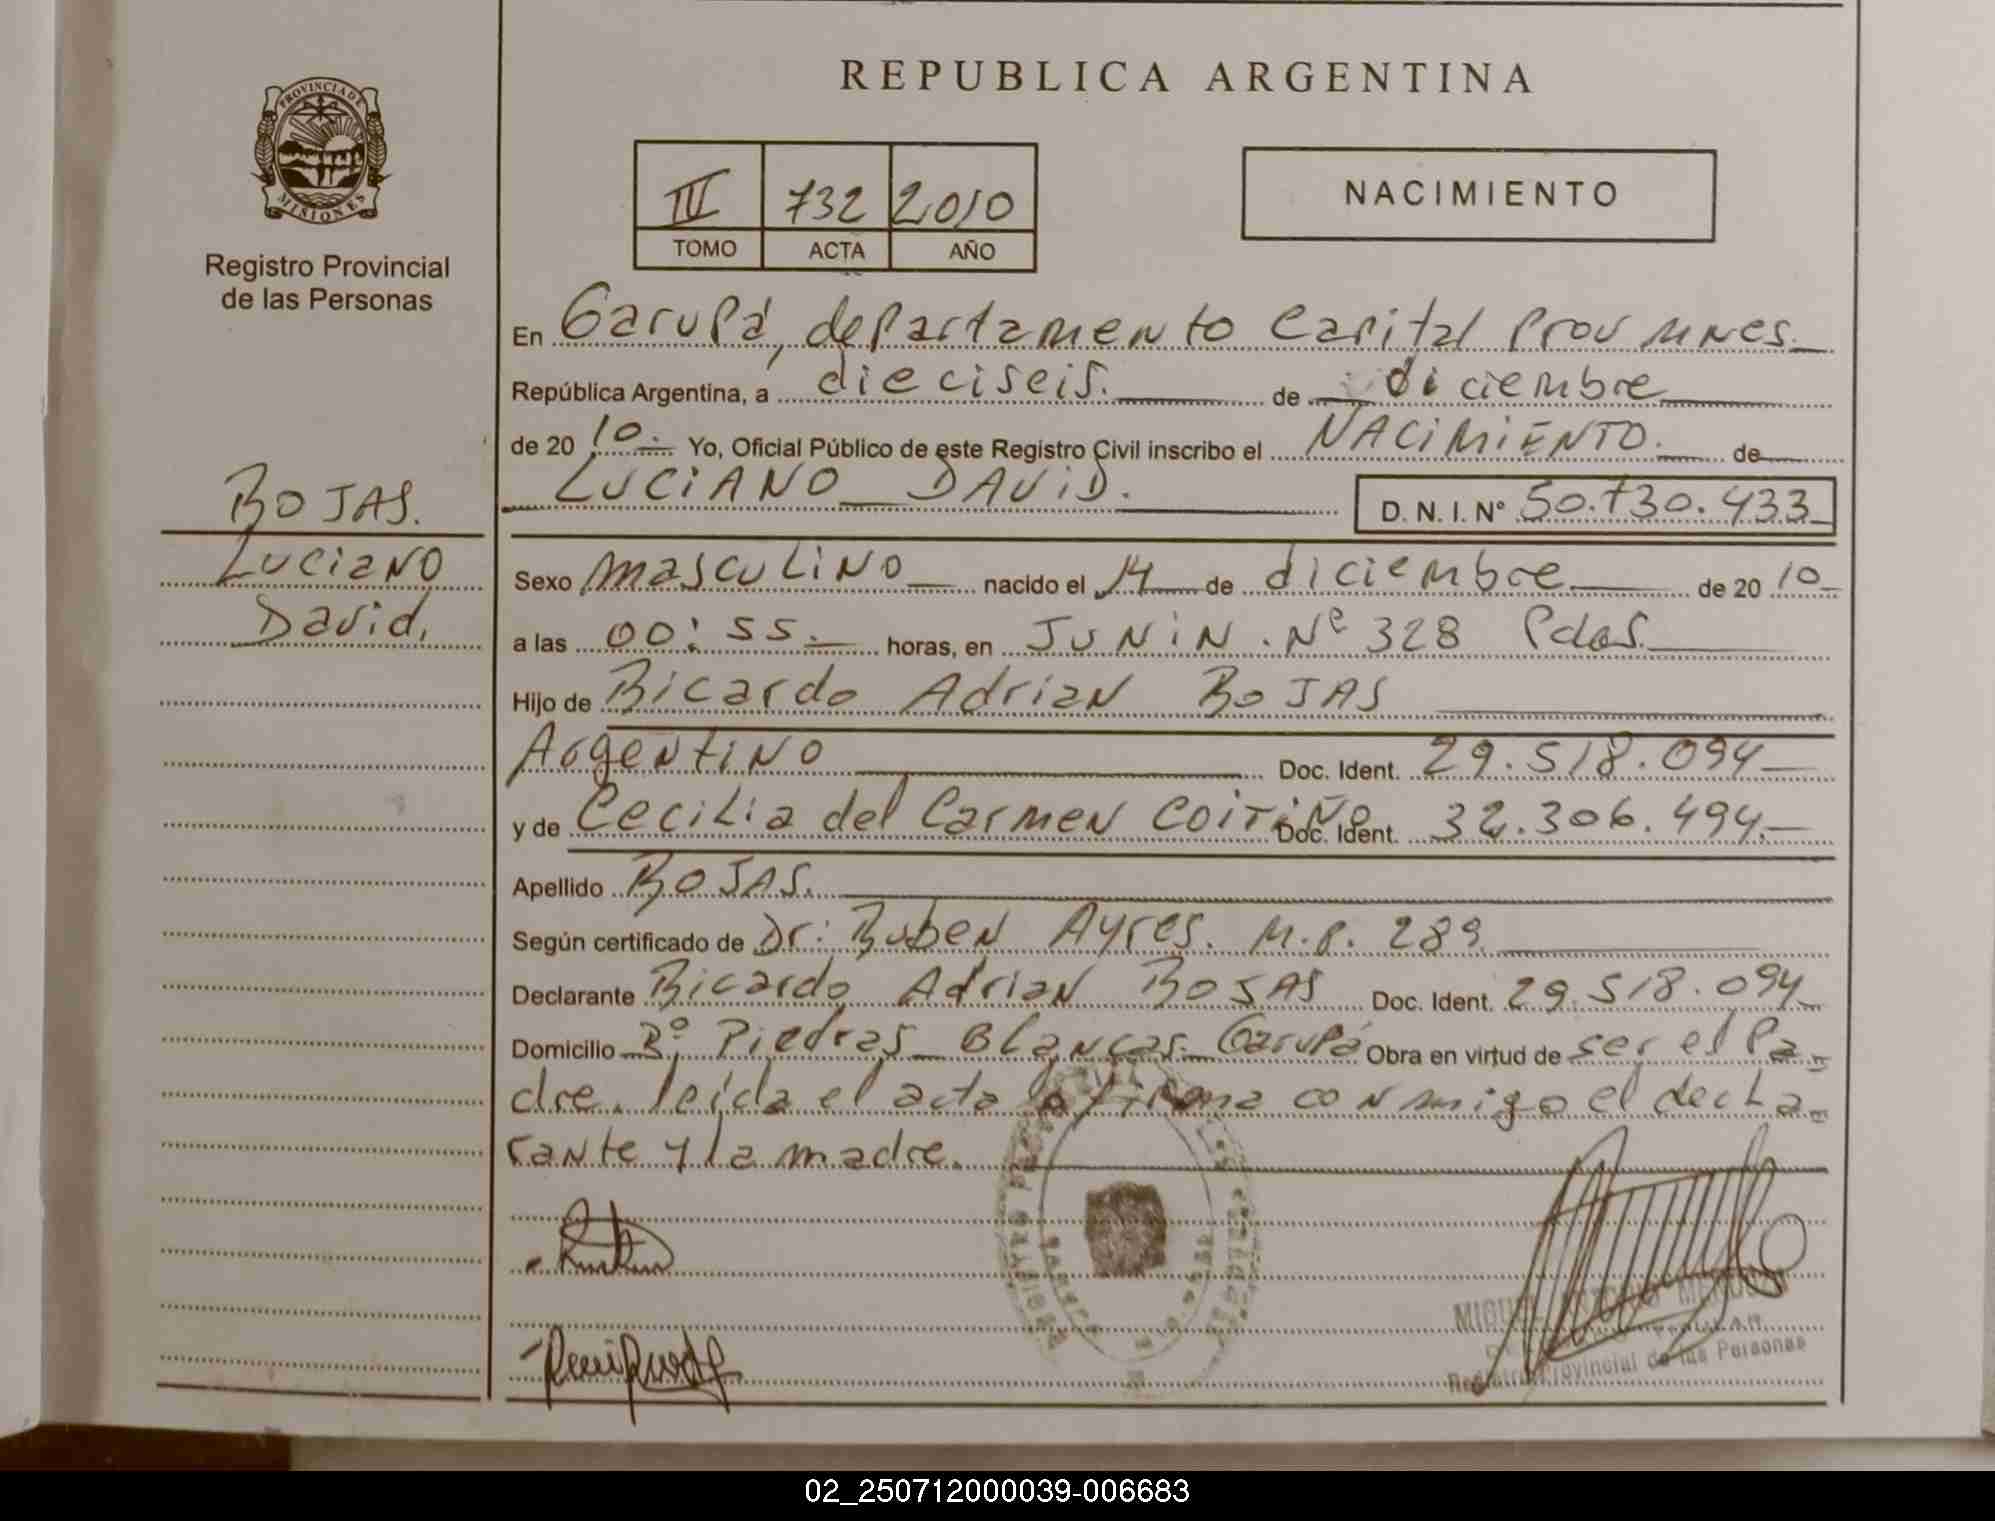 REPUBLICA ARGENTINA
PROVINCIA DE MISIONES
Registro Provincial
de las Personas
III 732 2010
TOMO ACTA AÑO
NACIMIENTO
En Garupá, departamento Capital Prov Mnes.
República Argentina, a dieciseis. de diciembre
de 20 10. Yo, Oficial Público de este Registro Civil inscribo el NACIMIENTO. de
LUCIANO DAVID. D.N.I. Nº 50.730.433
ROJAS.
Luciano
David.
Sexo masculino nacido el 14 de diciembre de 20 10
a las 00:55. horas, en JUNIN. Nº 328 Pdas.
Hijo de Ricardo Adrian ROJAS
Argentino Doc. Ident. 29.518.094
y de Cecilia del Carmen COITIÑO Doc. Ident. 32.306.494.
Apellido ROJAS.
Según certificado de Dr: Ruben Ayres. M.P. 289
Declarante Ricardo Adrian ROJAS Doc. Ident. 29.518.094
Domicilio Bº Piedras Blancas. Garupá Obra en virtud de ser el Pa-
dre. leída el acta firma conmigo el decla-
rante y la madre.
Registro Provincial de las Personas
02_250712000039-006683